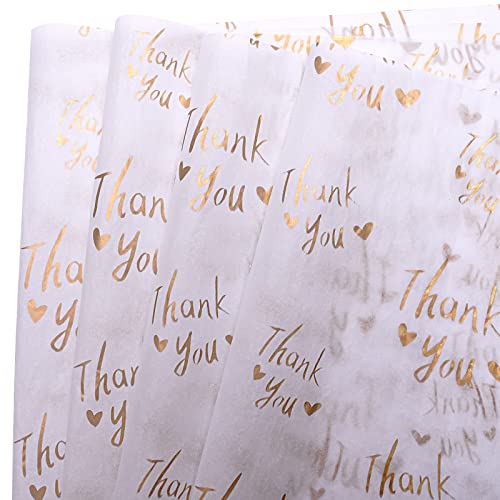 Thank
You
Thank
You
Thank
You
Thank
You
Thank
You
Thank
You
Thank
You
Thank
You
Thank
Thank